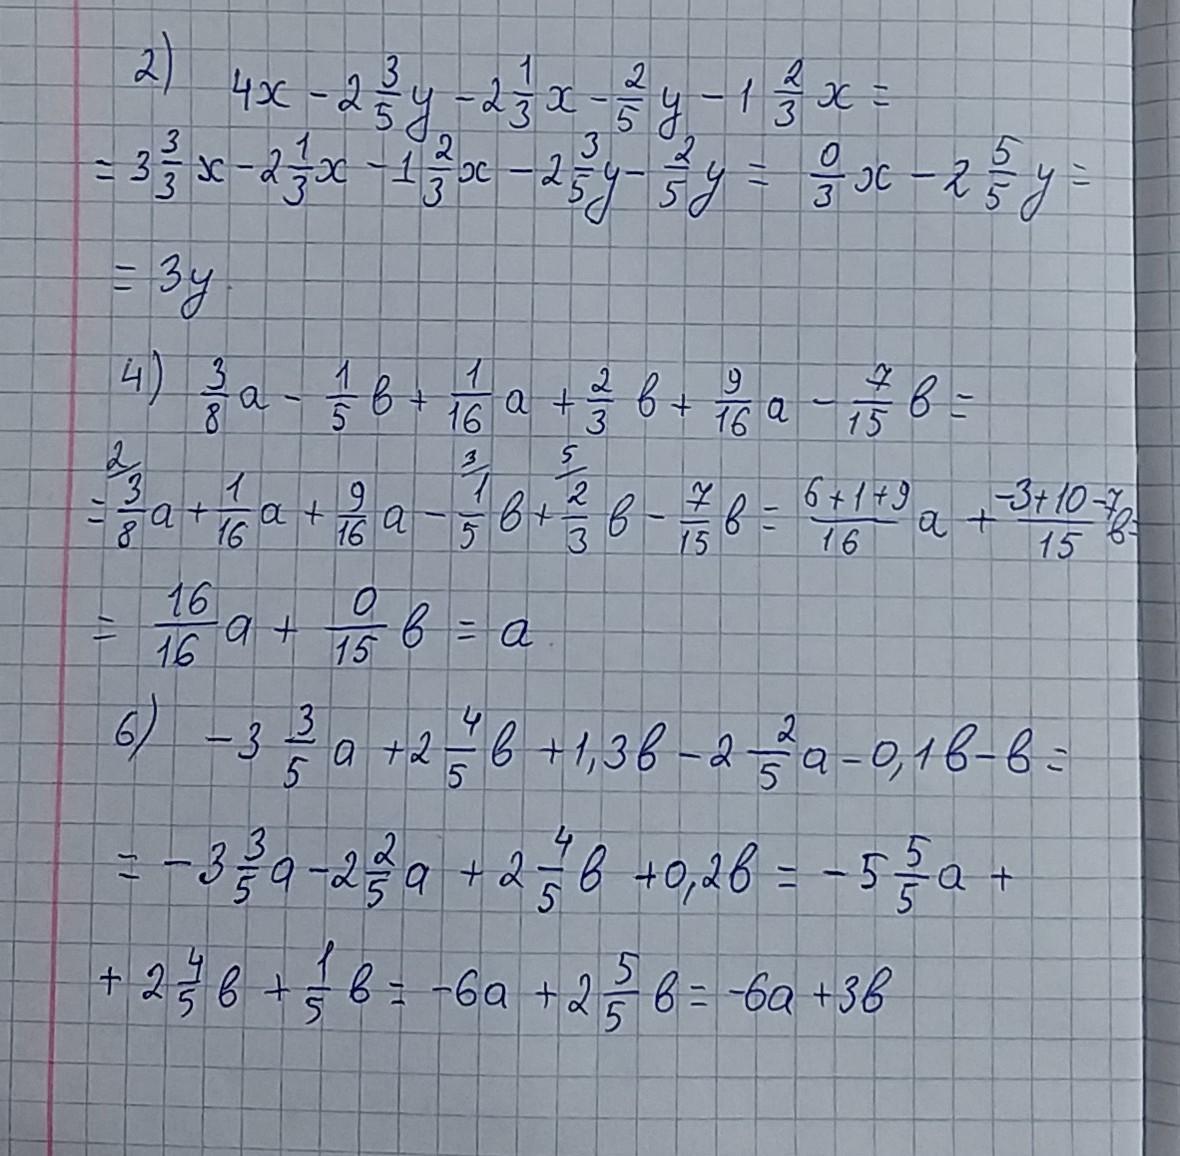 2) 4x - 2 3/5 y - 2 1/3 x - 2/5 y - 1 2/3 x =
= 3 3/3 x - 2 1/3 x - 1 2/3 x - 2 3/5 y - 2/5 y = 0/3 x - 2 5/5 y =
= 3y
4) 3/8 a - 1/5 в + 1/16 a + 2/3 в + 9/16 a - 7/15 в =
2/ 3/ 5/
= 3/8 a + 1/16 a + 9/16 a - 1/5 в + 2/3 в - 7/15 в = (6+1+9)/16 a + (-3+10-7)/15 в =
= 16/16 a + 0/15 в = a
6) -3 3/5 a + 2 4/5 в + 1,3в - 2 2/5 a - 0,1в - в =
= -3 3/5 a - 2 2/5 a + 2 4/5 в + 0,2в = -5 5/5 a +
+ 2 4/5 в + 1/5 в = -6a + 2 5/5 в = -6a + 3в